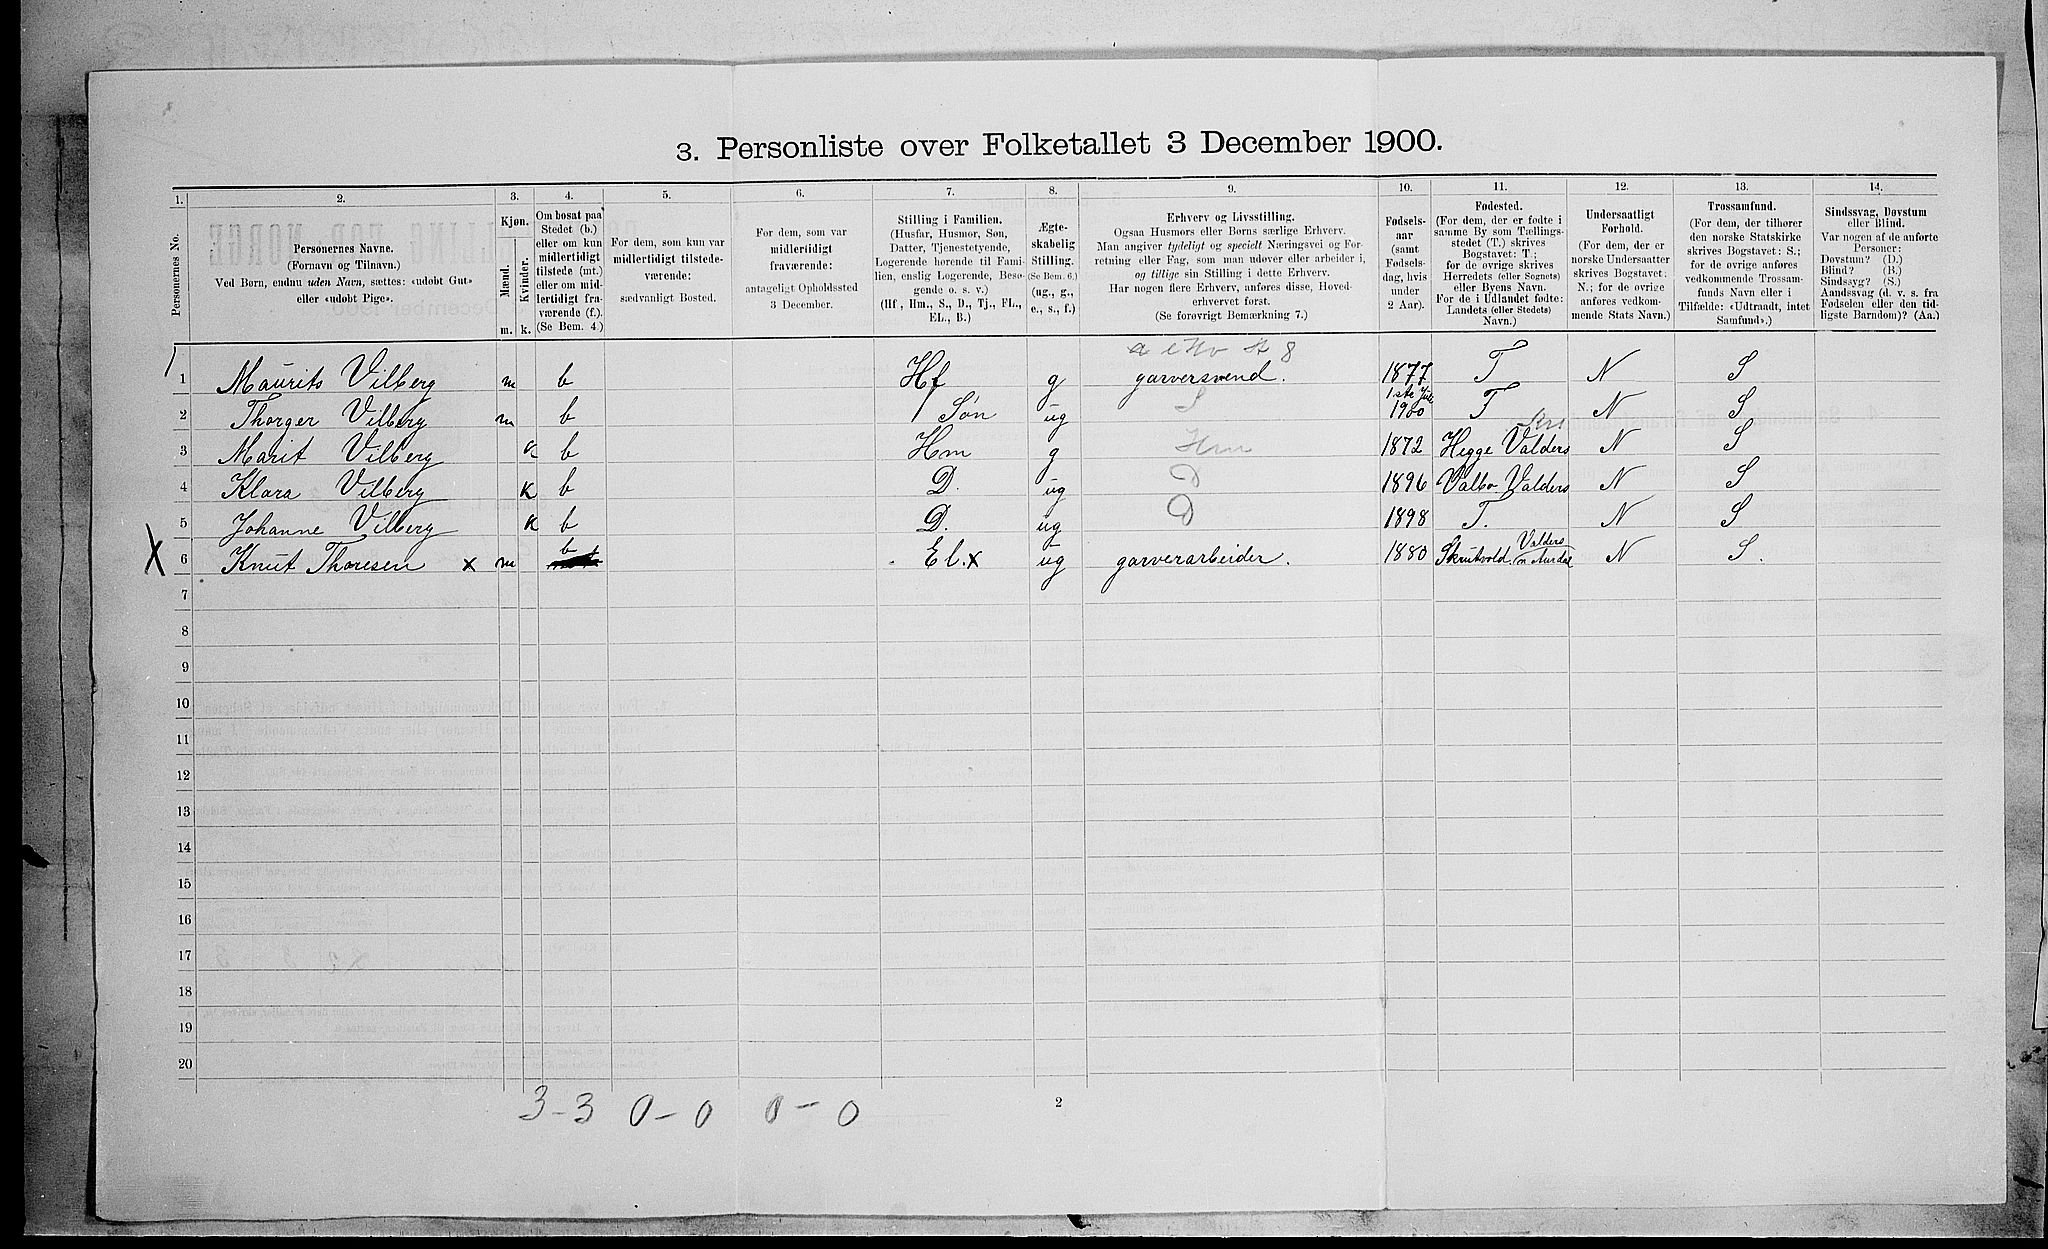 3. Personliste over Folketallet 3 December 1900.
1. 2. 3. 4. 5. 6. 7. 8. 9. 10. 11. 12. 13. 14.
Personernes No.
Personernes Navne.
(Fornavn og Tilnavn.)
Ved Børn, endnu uden Navn, sættes: «udøbt Gut»
eller «udøbt Pige».
Kjøn.
Mænd.
Kvinder.
m. k.
Om bosat paa
Stedet (b.)
eller om kun
midlertidigt
tilstede (mt.)
eller om mid-
lertidigt fra-
værende (f.).
(Se Bem. 4.)
For dem, som kun var
midlertidigt tilstede-
værende:
sædvanligt Bosted.
For dem, som var
midlertidigt
fraværende:
antageligt Opholdssted
3 December.
Stilling i Familien.
(Husfar, Husmor, Søn,
Datter, Tjenestetyende,
Logerende hørende til Fami-
lien, enslig Logerende, Besø-
gende o. s. v.)
(Hf, Hm., S., D., Tj., FL.,
EL., B.)
Ægte-
skabelig
Stilling.
(Se Bem. 6.)
(ug., g.,
e., s., f.)
Erhverv og Livsstilling.
Ogsaa Husmors eller Børns særlige Erhverv.
Man angiver tydeligt og specielt Næringsvei og For-
retning eller Fag, som man udøver eller arbeider i,
og tillige sin Stilling i dette Erhverv.
Har nogen flere Erhverv, anføres disse, Hoved-
erhvervet først.
(Se forøvrigt Bemærkning 7.)
Fødsels-
aar
(samt
Fødsels-
dag, hvis
under
2 Aar).
Fødested.
(For dem, der er fødte i
samme By som Tællings-
stedet (T.) skrives
Bogstavet: T.;
for de øvrige skrives
Herredets (eller Sognets)
eller Byens Navn.
For de i Udlandet fødte:
Landets (eller Stedets)
Navn.)
Undersaatligt
Forhold.
(For dem, der er
norske Undersaatter
skrives Bogstavet:
N.; for de øvrige
anføres vedkom-
mende Stats Navn.)
Trossamfund.
(For dem, der tilhører
den norske Statskirke
skrives Bogstavet: S.;
for de øvrige anføres
vedkommende Trossam-
funds Navn eller i
Tilfælde: «Udtraadt, intet
Samfund».)
Sindssvag, Døvstum
eller Blind.
Var nogen af de anførte
Personer:
Døvstum? (D.)
Blind? (B.)
Sindssyg? (S.)
Aandssvag (d. v. s. fra
Fødselen eller den tid-
ligste Barndom)? (Aa.)
1 Maurits Vilberg m b Hf g garversvend. 1877 T N S
2 Thorger Vilberg m b Søn ug S 1ste Juli 1900 T N S
3 Marit Vilberg k b Hm g Hm 1872 Hegge Valders N S
4 Klara Vilberg K b D. ug D 1896 Valbo Valders N S
5 Johanne Vilberg K b D. ug D 1898 T. N S
X 6 Knut Thoresen x m b El. x ug garverarbeider. 1880 Skrutvold. Valders n Aurdal N S.
7
8
9
10
11
12
13
14
15
16
17
18
19
20
3-3 0-0 0-0
2